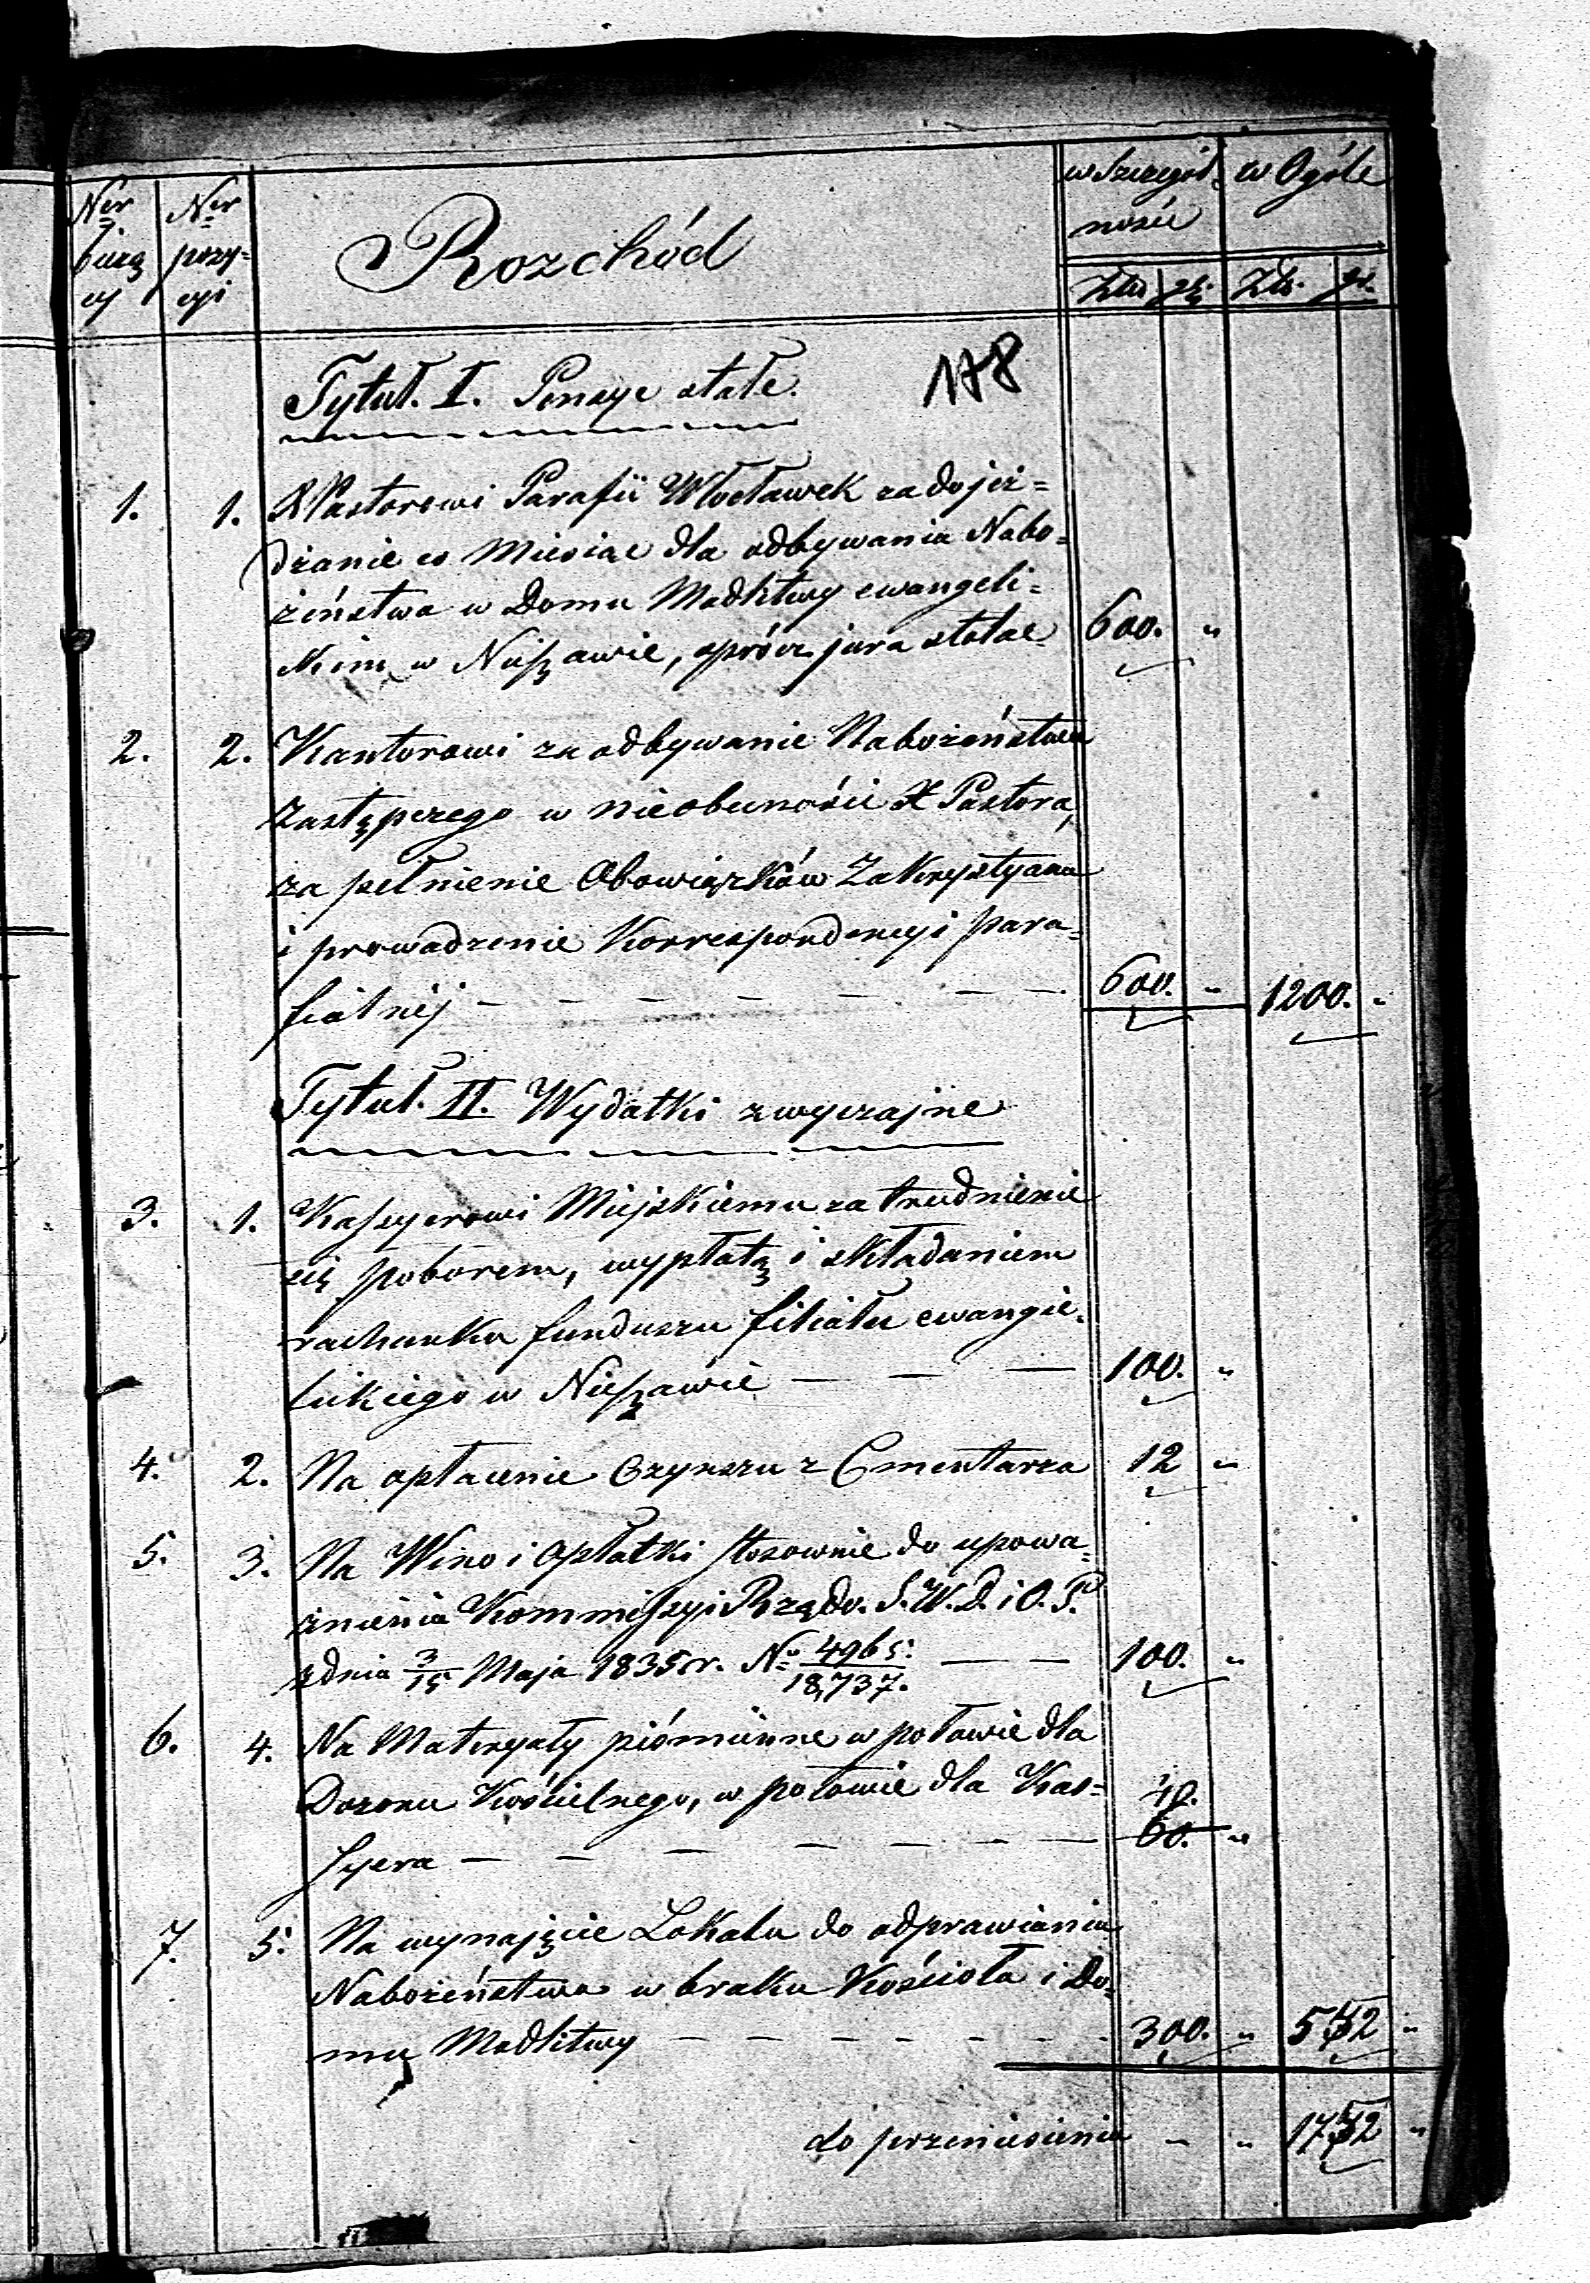 Ner bieżą cy | Ner pozy= cyi | Rozchód | w Szczegól ności | w Ogóle
Złto | gr. | Złt. | gr.
178
Tytuł. I. Pensye stałe.
1. 1. X Pastorowi Parafii Włocławek za dojeż=
dżanie co Miesiąc dla odbywania Nabo=
żeństwa w Domu Modlitwy ewangeli=
ckim w Nieszawie, oprócz jura stolae 600. "
2. 2. Kantorowi za odbywanie Nabożeństwa
Zastępczego w nieobecności X Pastora,
za pełnienie Obowiązków Zakrystyana
i prowadzenie Korrespondencyi para=
fialnéj — — — — — — — 600. " 1200. "
Tytuł. II. Wydatki zwyczajne
3. 1. Kassyerowi Miejskiemu za trudnienie
się poborem, wypłatą i składaniem
rachunku funduszu filiału ewangie=
lickiego w Nieszawie — — — 100. "
4. 2. Na opłacenie Czynszu z Cmentarza 12 "
5. 3. Na Wino i Opłatki stosownie do upowa=
żnienia Kommissyi Rządo. S. W. D. i O. P.
z dnia 3/15 Maja 1835 r. No 4965/18,737. — — 100. "
6. 4. Na Materyały piśmienne w połowie dla
Dozoru Kościelnego, w połowie dla Kas= 40.
syera — — — — — — 60. "
7. 5. Na wynajęcie Lokalu do odprawiania
Nabożeństwa w braku Kościoła i Do=
mu Modlitwy — — — — — — — 300. " 552 "
do przeniesienia " " 1752 "